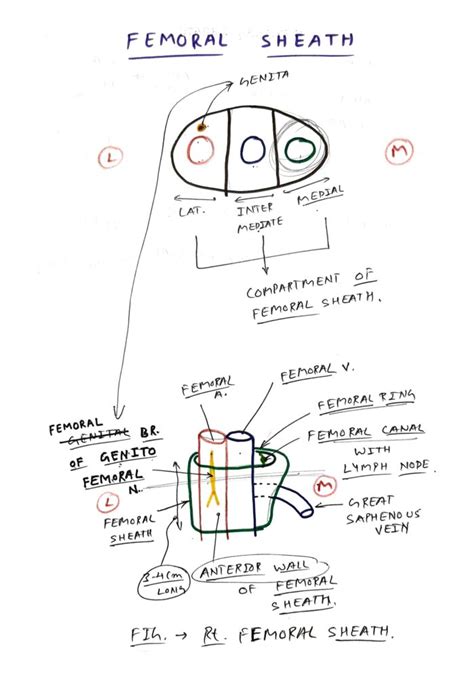 FEMORAL SHEATH
GENITA
L
M
LAT.
INTER
MEDIATE
MEDIAL
COMPARTMENT OF
FEMORAL SHEATH.
FEMORAL
A.
FEMORAL V.
FEMORAL RING
FEMORAL CANAL
WITH
LYMPH NODE.
FEMORAL
GENITAL BR.
OF GENITO
FEMORAL
N.
L
M
FEMORAL
SHEATH
GREAT
SAPHENOUS
VEIN
3-4cm
LONG
ANTERIOR WALL
OF FEMORAL
SHEATH.
FIG. → Rt. FEMORAL SHEATH.